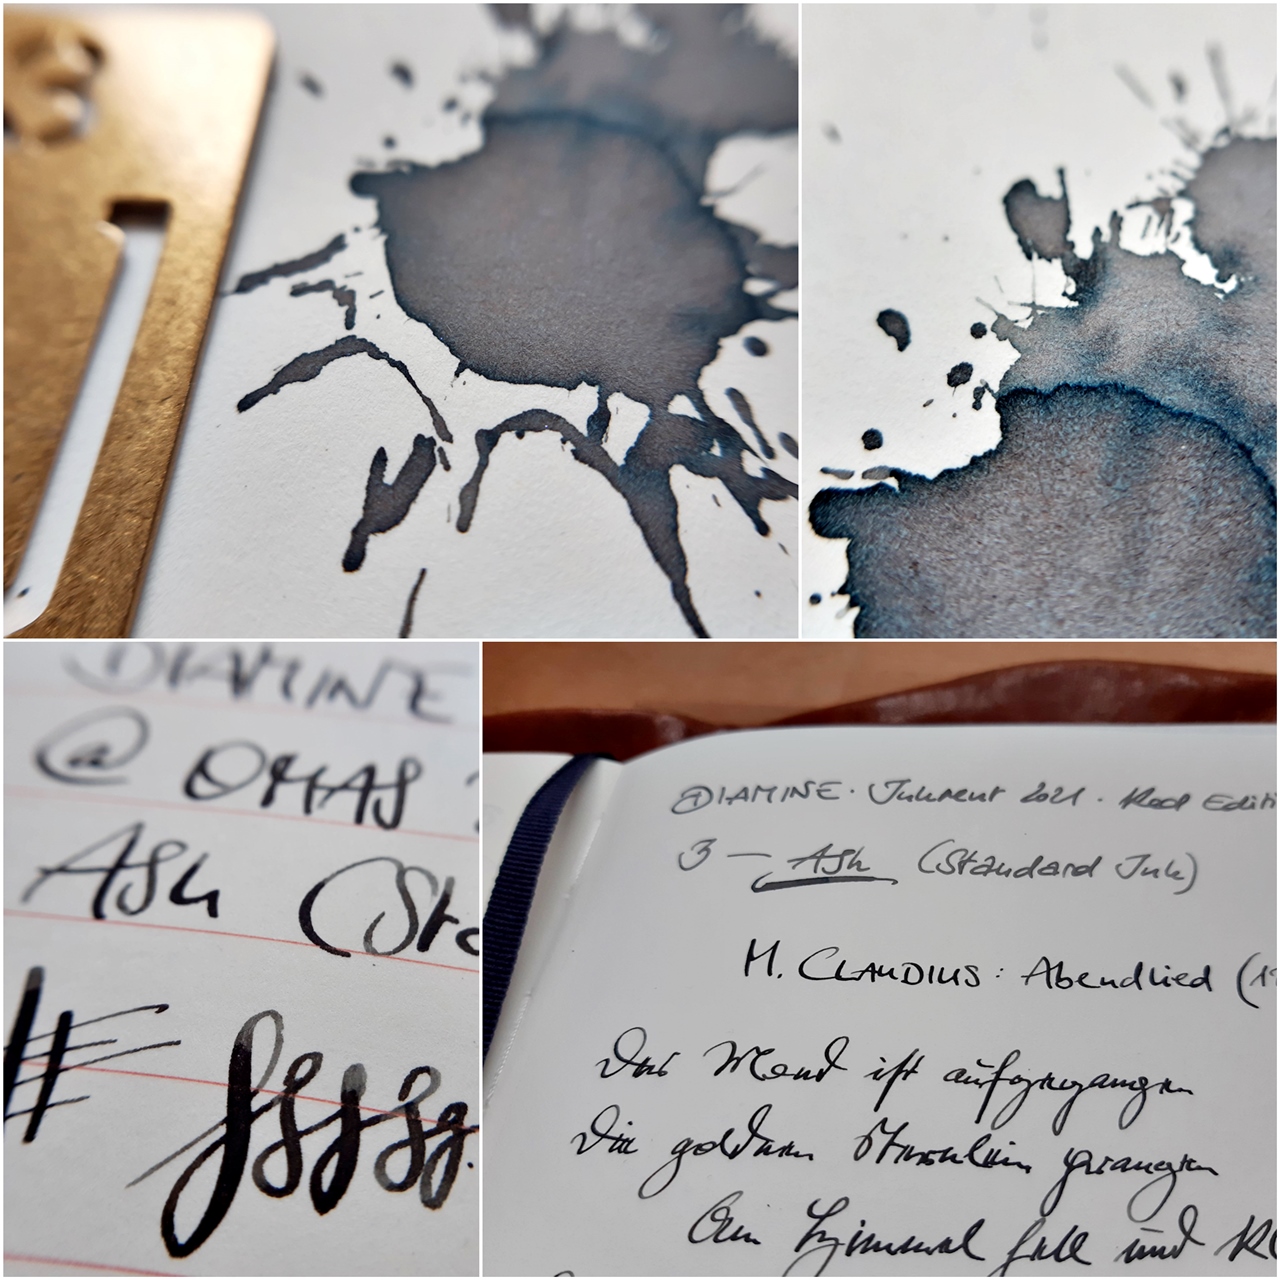 DIAMINE
@ OMAS
Ash (Sta
DIAMINE · Inkvent 2021 · Red Editi
3 — Ash (Standard Ink)
M. CLAUDIUS: Abendlied (17
Der Mond ist aufgegangen
Die goldnen Sternlein prangen
Am Himmel hell und kl